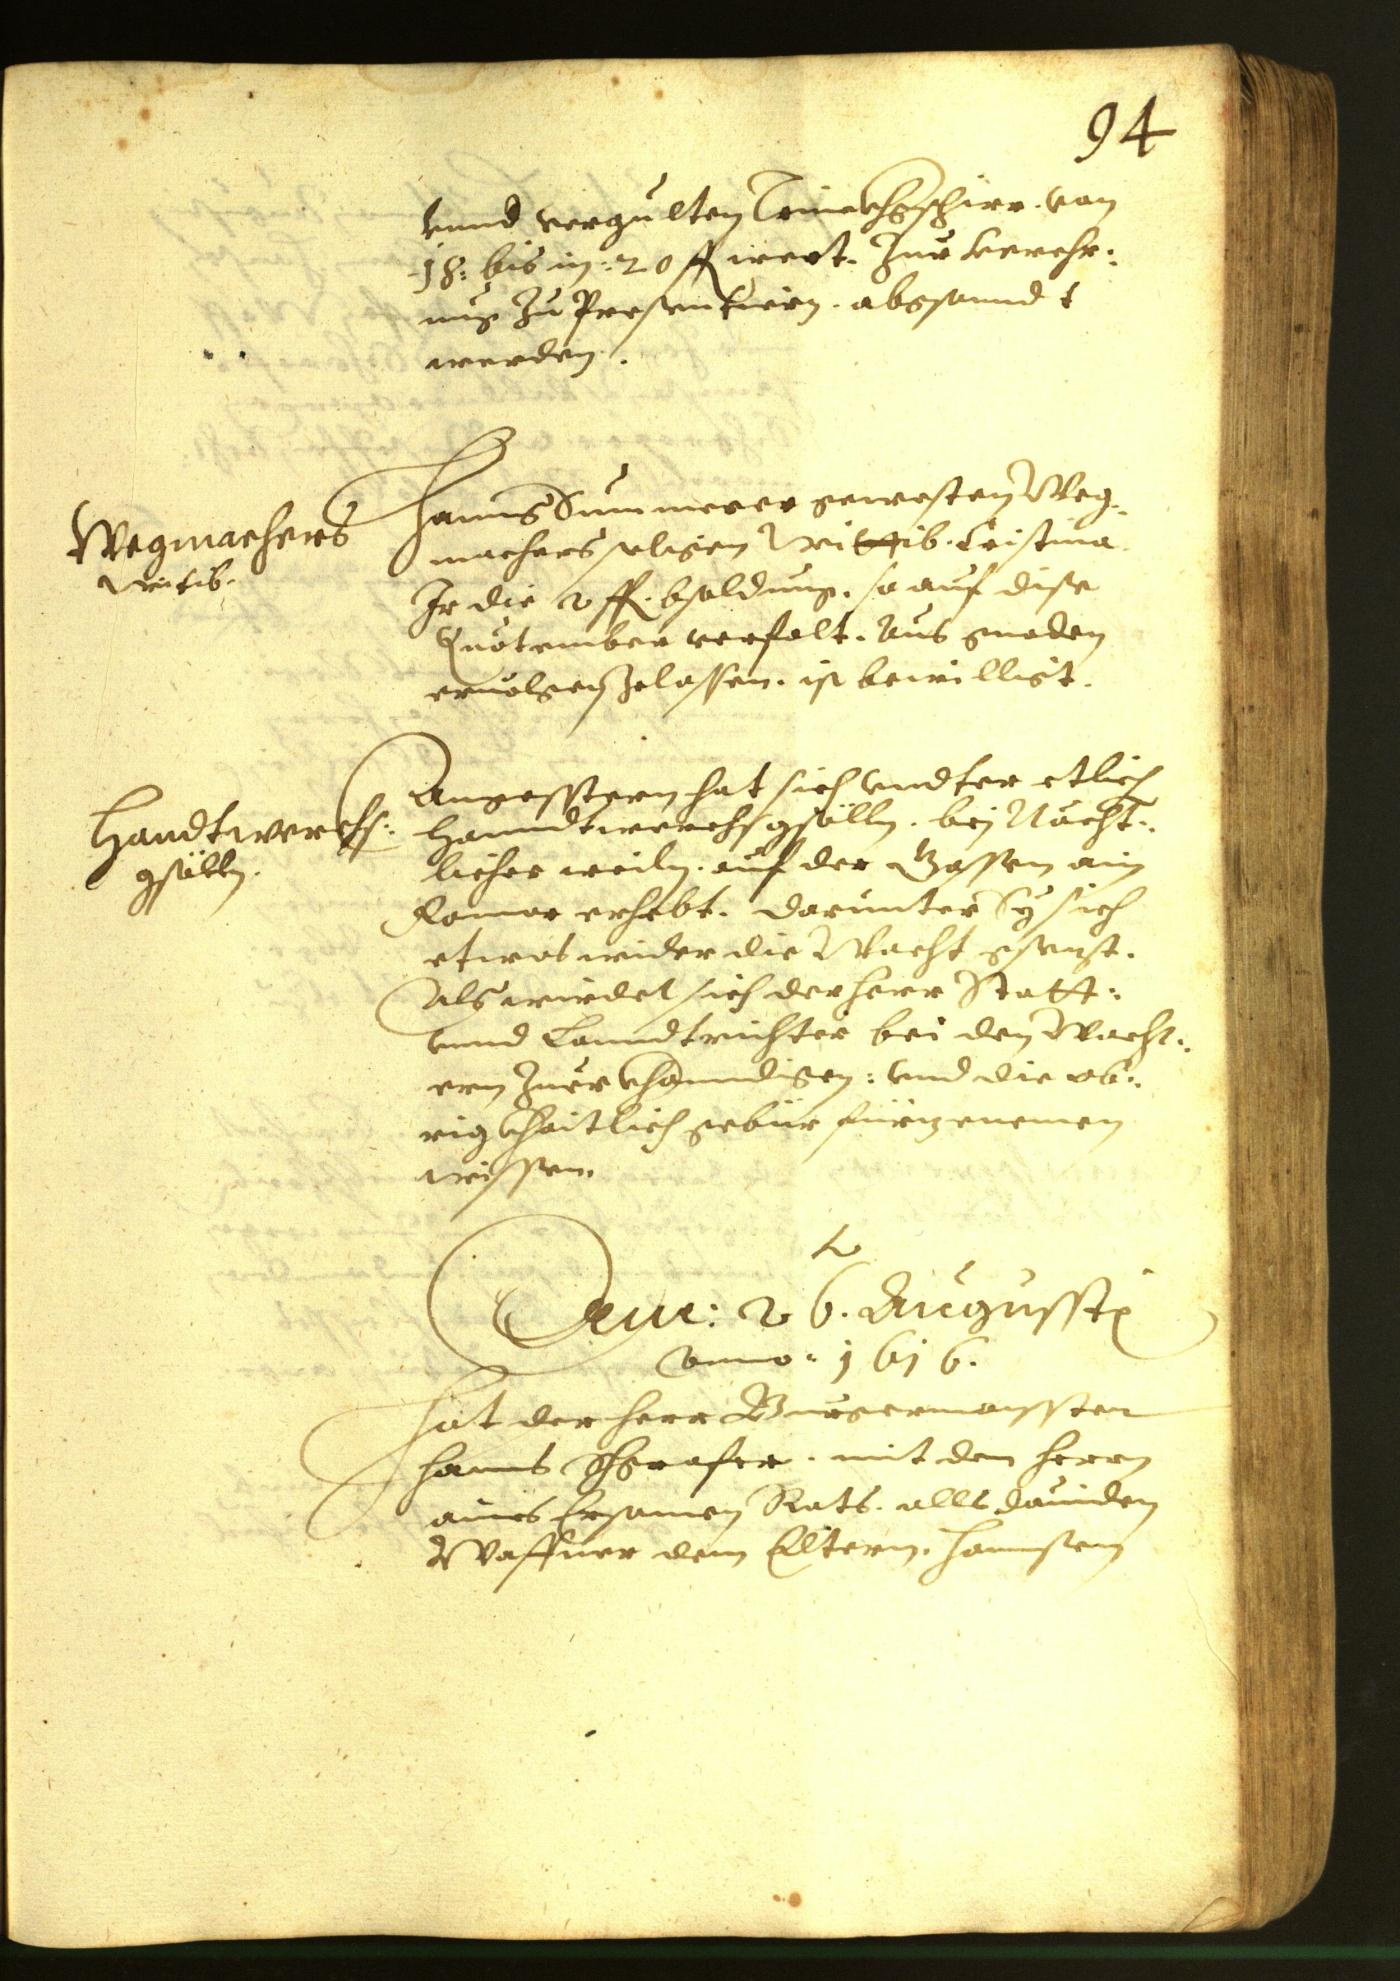 94
vnnd vergulten Trinckhgschirr. von
18: bis in: 20 ff wert. Zur verehr:
nus zu Presentiern. abgsanndt
werden.
Wegmachers
witib.
Hanns Summerer gewesten Weg:
machers seligen Wittib. Cristina.
Ir die 2 ff. bsoldung. so auf dise
Quotember verfalt. Aus gnaden
eruolgen zelassen. ist bewilligt.
Handtwerchs:
gsölln.
Anngesstern hat sich vndter etlich
Hanndtwerchsgsölln. bej Nächt:
licher weiln. auf der Gassen ain
Romor erhebt. Darunter Sy sich
etwas wider die Wacht gsenzt.
Als wirdet sich der Herr Statt:
vnnd Lanndtrichter bei den Wächt:
ern zuerkhanndigen: vnd die ob:
rigkhaitlich gebür fürzenemen
wissen.
Denn: 26. Augussti
Anno: 1616.
Hat der Herr Burgermaisster
Hanns Schgrafer. mit den Herrn
aines Ersamen Rats. alls Dauiden
Waffner dem Elltern. Hannsen